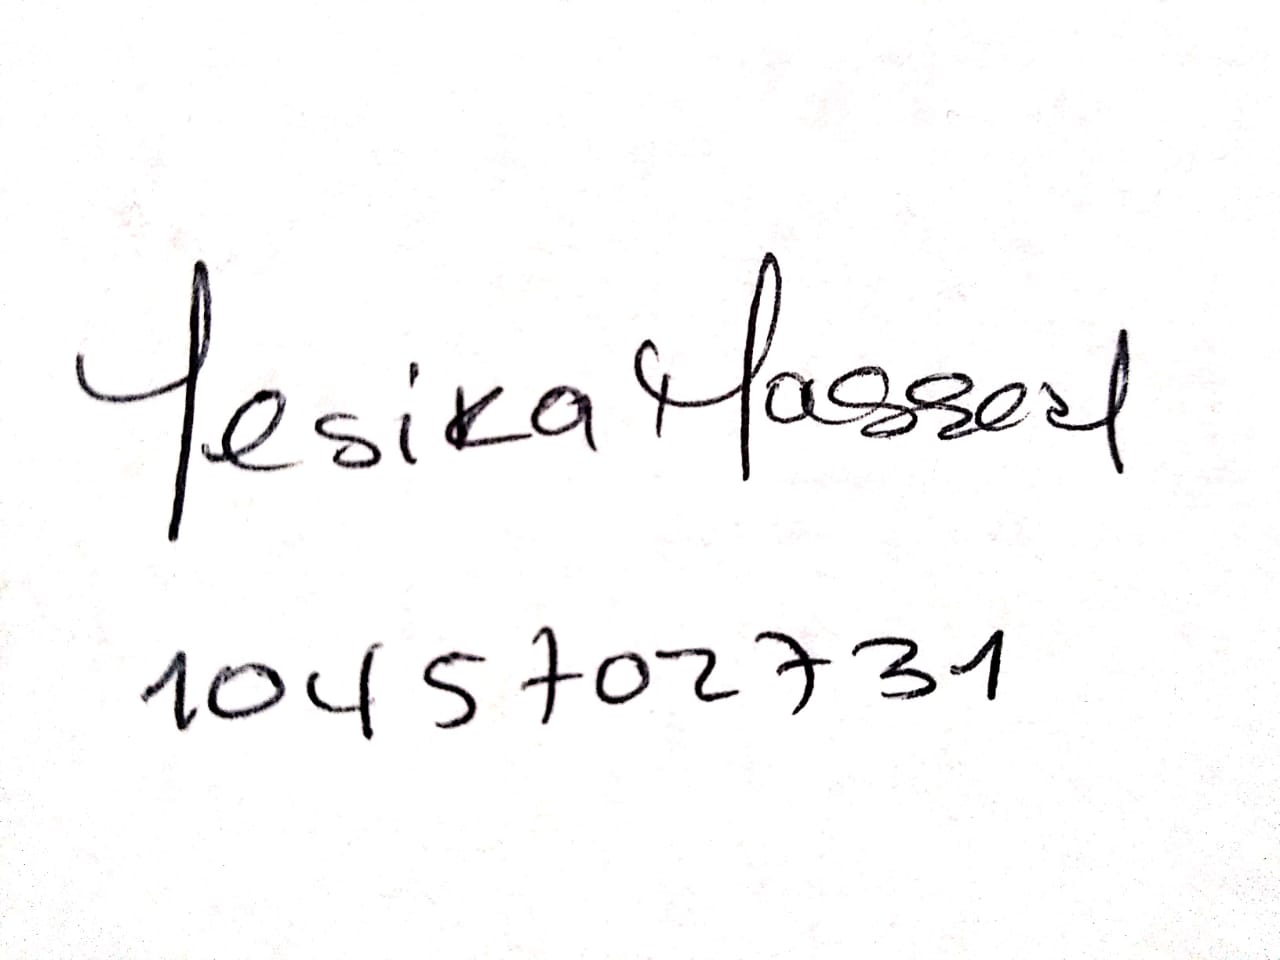 Yesika Yasserl
1045702731